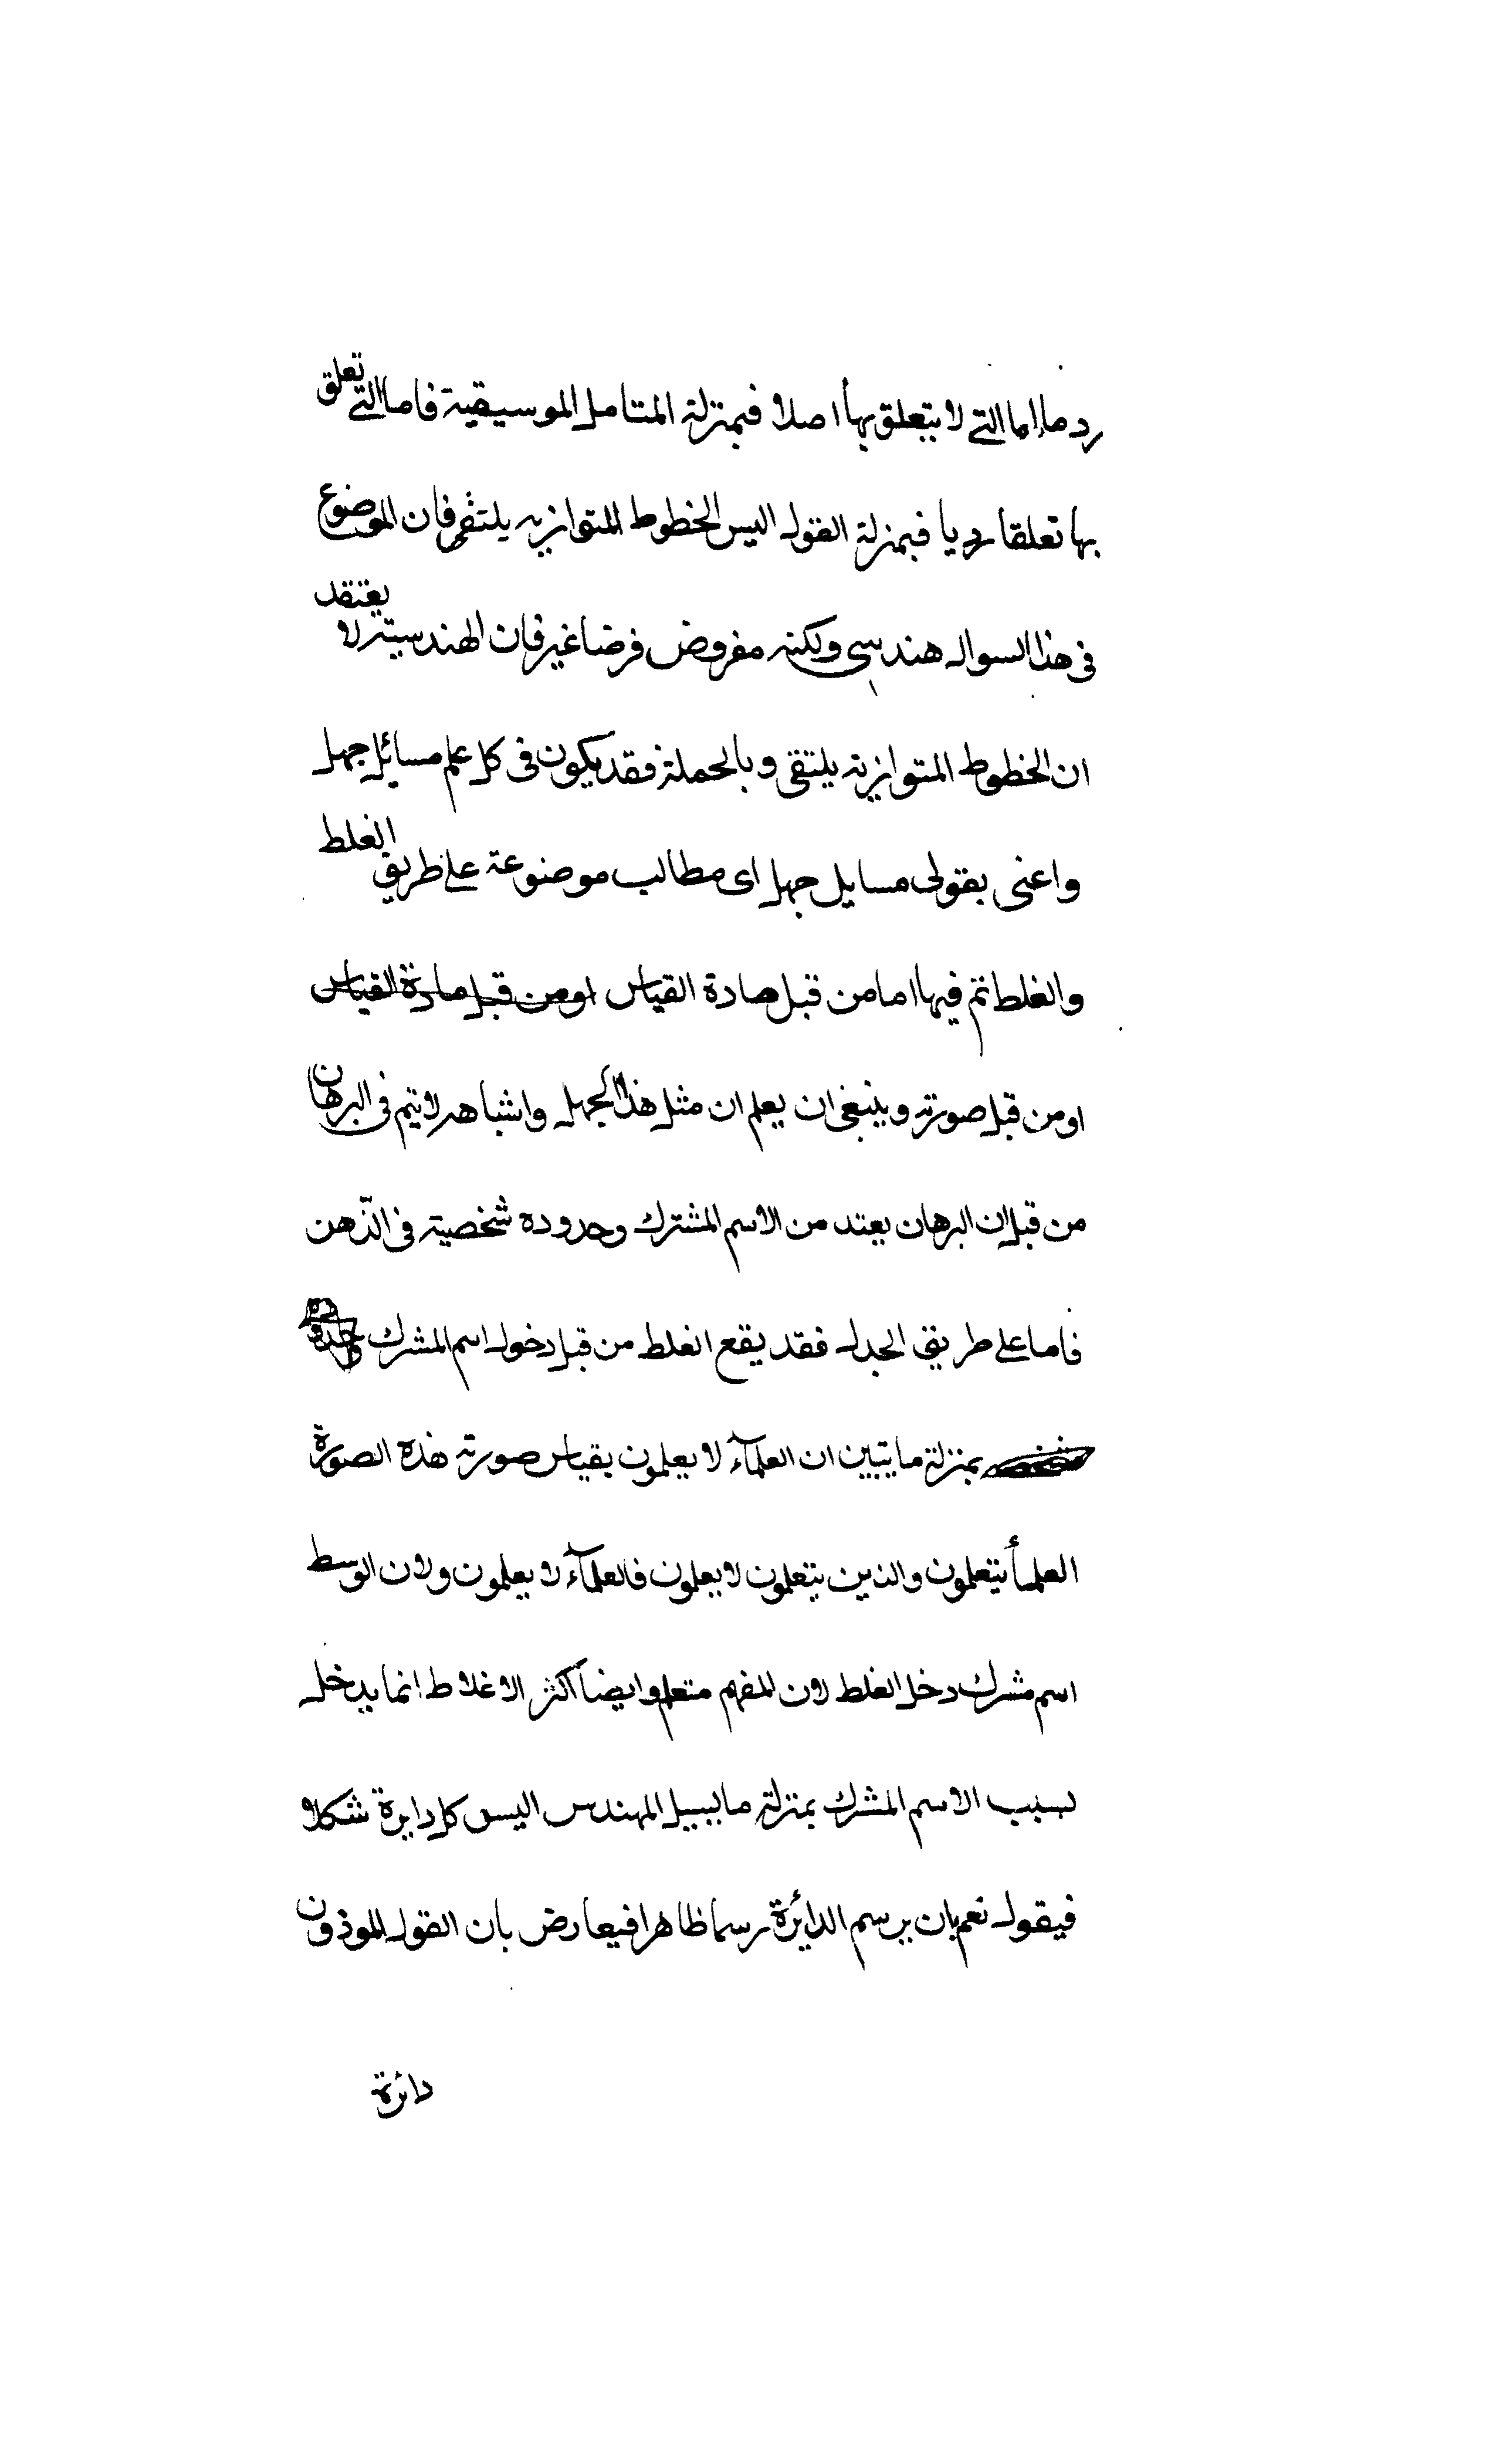 رد ما اما التى لا يتعلق بها اصلا فبمنزلة المتامل الموسيقية فاما التى تعلق
بها تعلقا رديا فبمنزلة القول اليس الخطوط المتوازيه يلتقى فان الموضوع
فى هذا السوال هندسى ولكنه مفروض فرضا غير فان الهندسية لا يعتقد
ان الخطوط المتوازية يلتقى وبالجملة فقد يكون فى كل علم مسائل جهل
واعنى بقولى مسايل جهل اى مطالب موضوعة على طريق الغلط
والغلط تم فيها اما من قبل مادة القياس او من قبل مادة القياس
او من قبل صورته وينبغى ان يعلم ان مثل هذا الجهل واشباهه لا يتم فى البرهان
من قبل ان البرهان يعتد من الاسم المشترك وحدوده شخصية فى الذّهن
فاما على طريق الجدل فقد يقع الغلط من قبل دخول اسم المشرك
بمنزلة ما يتبين ان العلمآء لا يعلمون بقياس صورته هذه الصورة
العلمأ يتعلمون والذين يتعلمون لا يعلمون فالعلمآء لا يعلمون ولان الوسط
اسم مشرك دخل الغلط لان المفهم متعلم وايضا اكثر الاغلاط انما يدخل
بسبب الاسم المشرك بمنزلة ما يسيل المهندس اليس كل دايرة شكلا
فيقول نعم بان يرسم الدائرة رسما ظاهرا فيعارض بان القول الموذون
دائرة